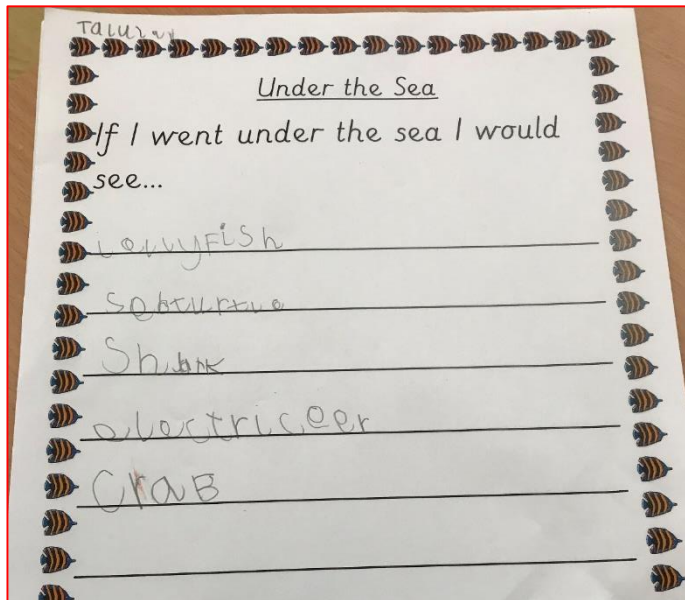 Under the Sea
If I went under the sea I would
see...
JellyFish
Seaturtle
Shark
electriceer
CraB